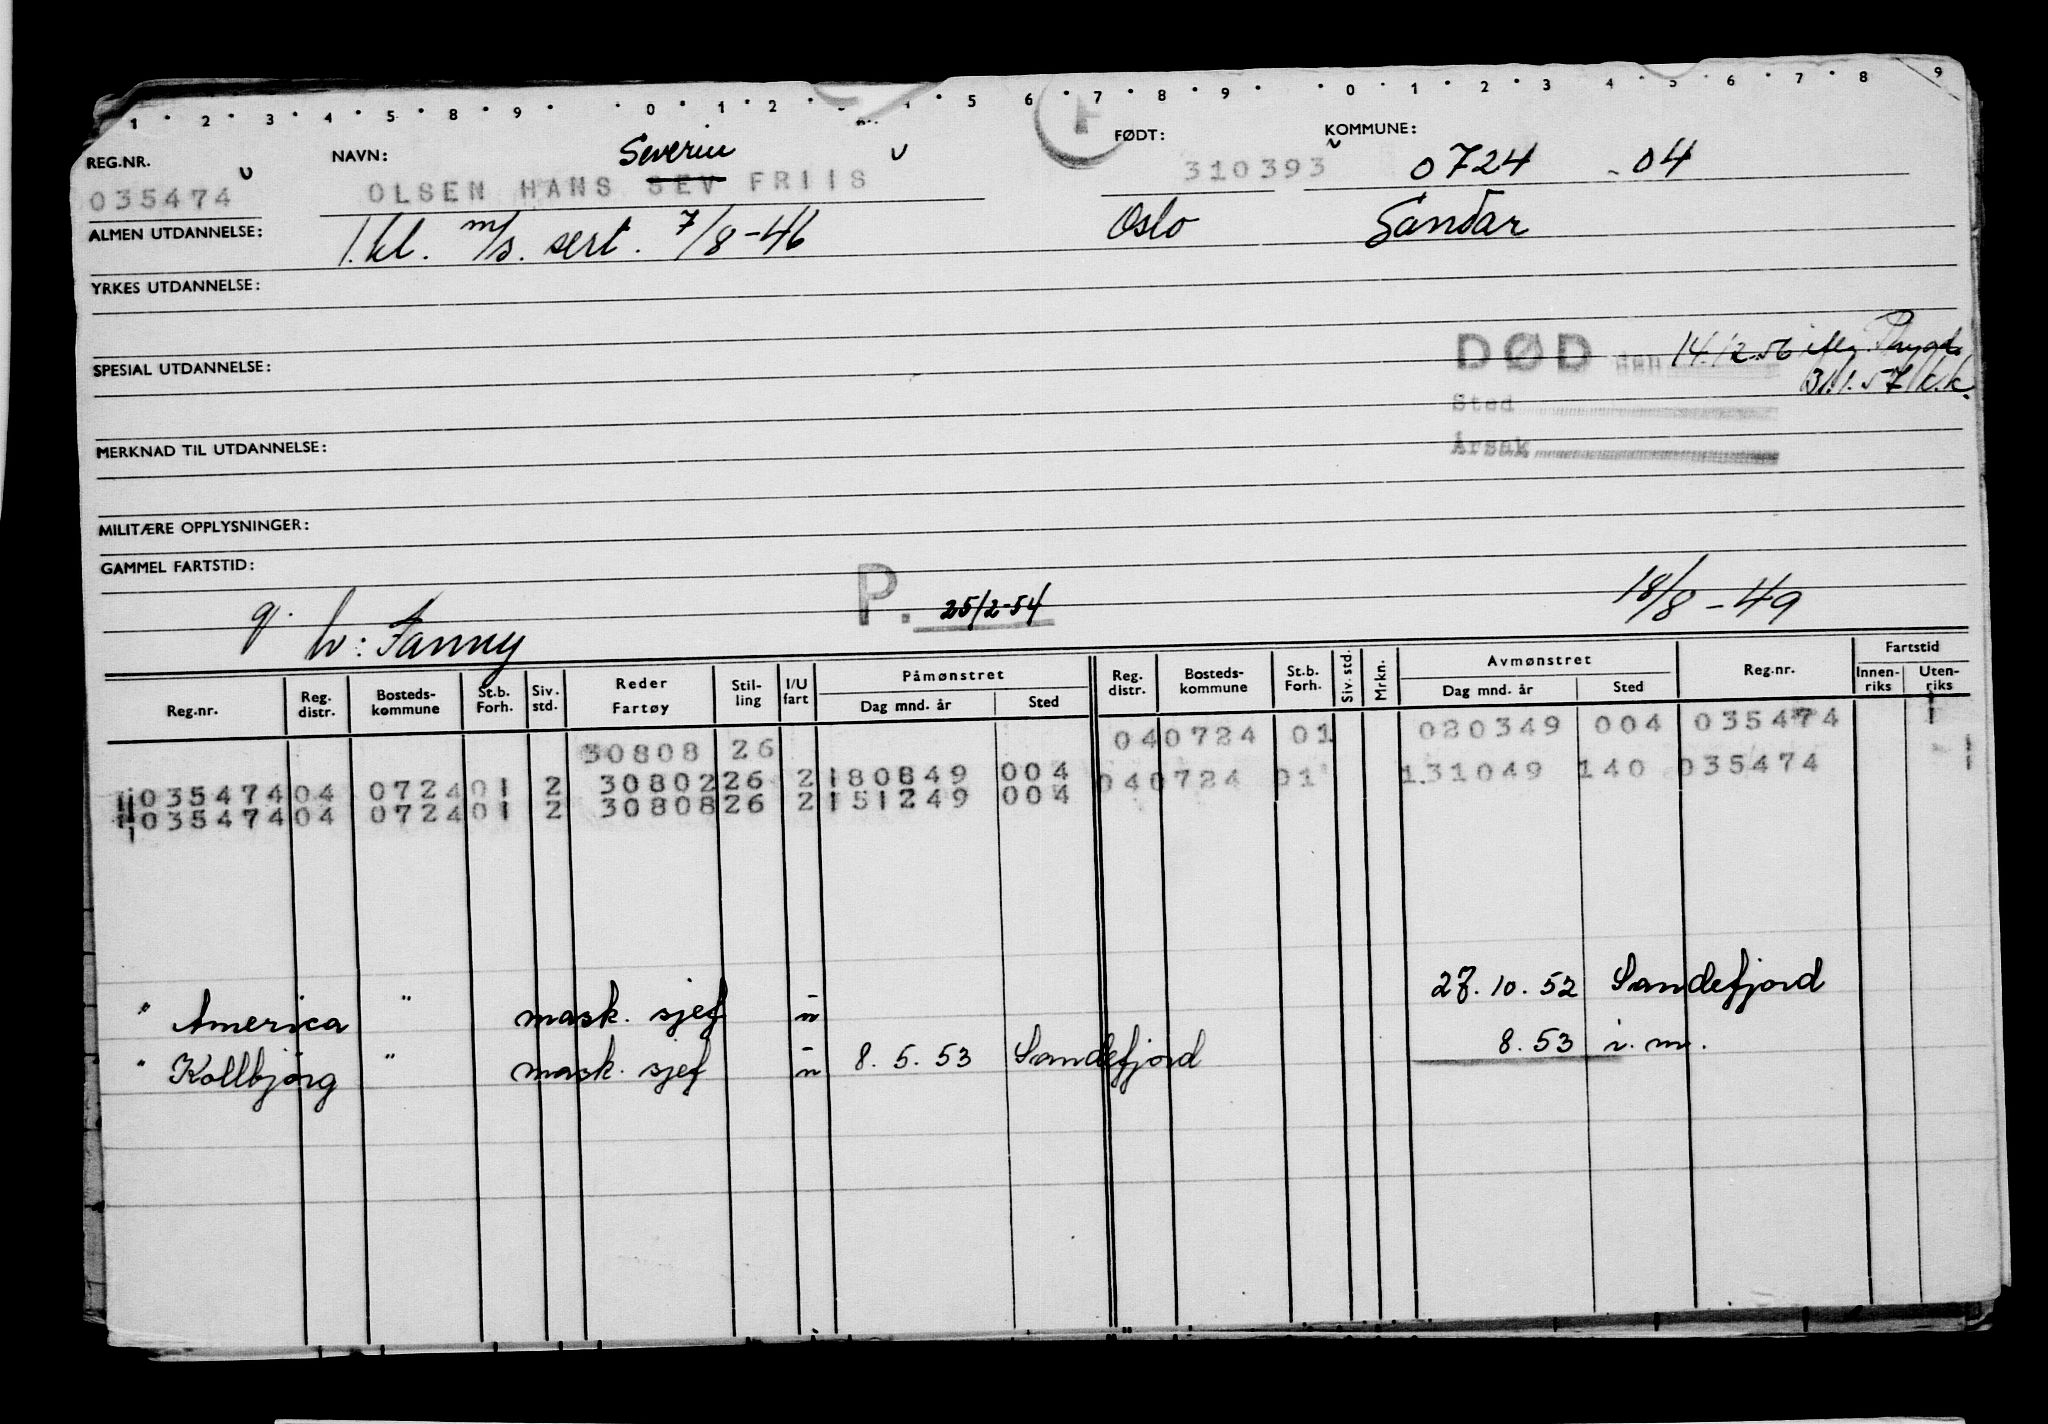 1 • 2 • 3 • 4 • 5 • 8 • 9 • • 0 • 1 • 2 • • 5 6 • 7 • 8 • 9 • • 0 • 1 • 2 • 3 • 4 • 5 • 6 • 7 • 8 9
REG.NR. NAVN: Severin FØDT: KOMMUNE:
035474 OLSEN HANS SEV FRIIS 310393 0724 - 04
ALMEN UTDANNELSE: 1. kl. m/s. sert. 7/8-46 Oslo Sandar
YRKES UTDANNELSE:
DØD den 14.12.56 iflg.
SPESIAL UTDANNELSE: 31.1.57 k.k.
Sted
MERKNAD TIL UTDANNELSE: Årsak
MILITÆRE OPPLYSNINGER:
GAMMEL FARTSTID:
P. 25/2-54 18/8-49
g. h: Fanny
Reg.nr. Reg. distr. Bosteds-kommune St.b. Forh. Siv. std. Reder Fartøy Stil-ling I/U fart Påmønstret Dag mnd. år Sted Reg. distr. Bosteds-kommune St.b. Forh. Siv. std. Mrkn. Avmønstret Dag mnd. år Sted Reg.nr. Fartstid Innen-riks Uten-riks
30808 26 04 0724 01 020349 004 035474 1
035474 04 0724 01 2 30802 26 2 180849 004 04 0724 01 131049 140 035474 1
035474 04 0724 01 2 30808 26 2 151249 004
" America " mask. sjef u 27.10.52 Sandefjord
" Kollbjørg " mask. sjef u 8.5.53 Sandefjord 8.53 i. m.